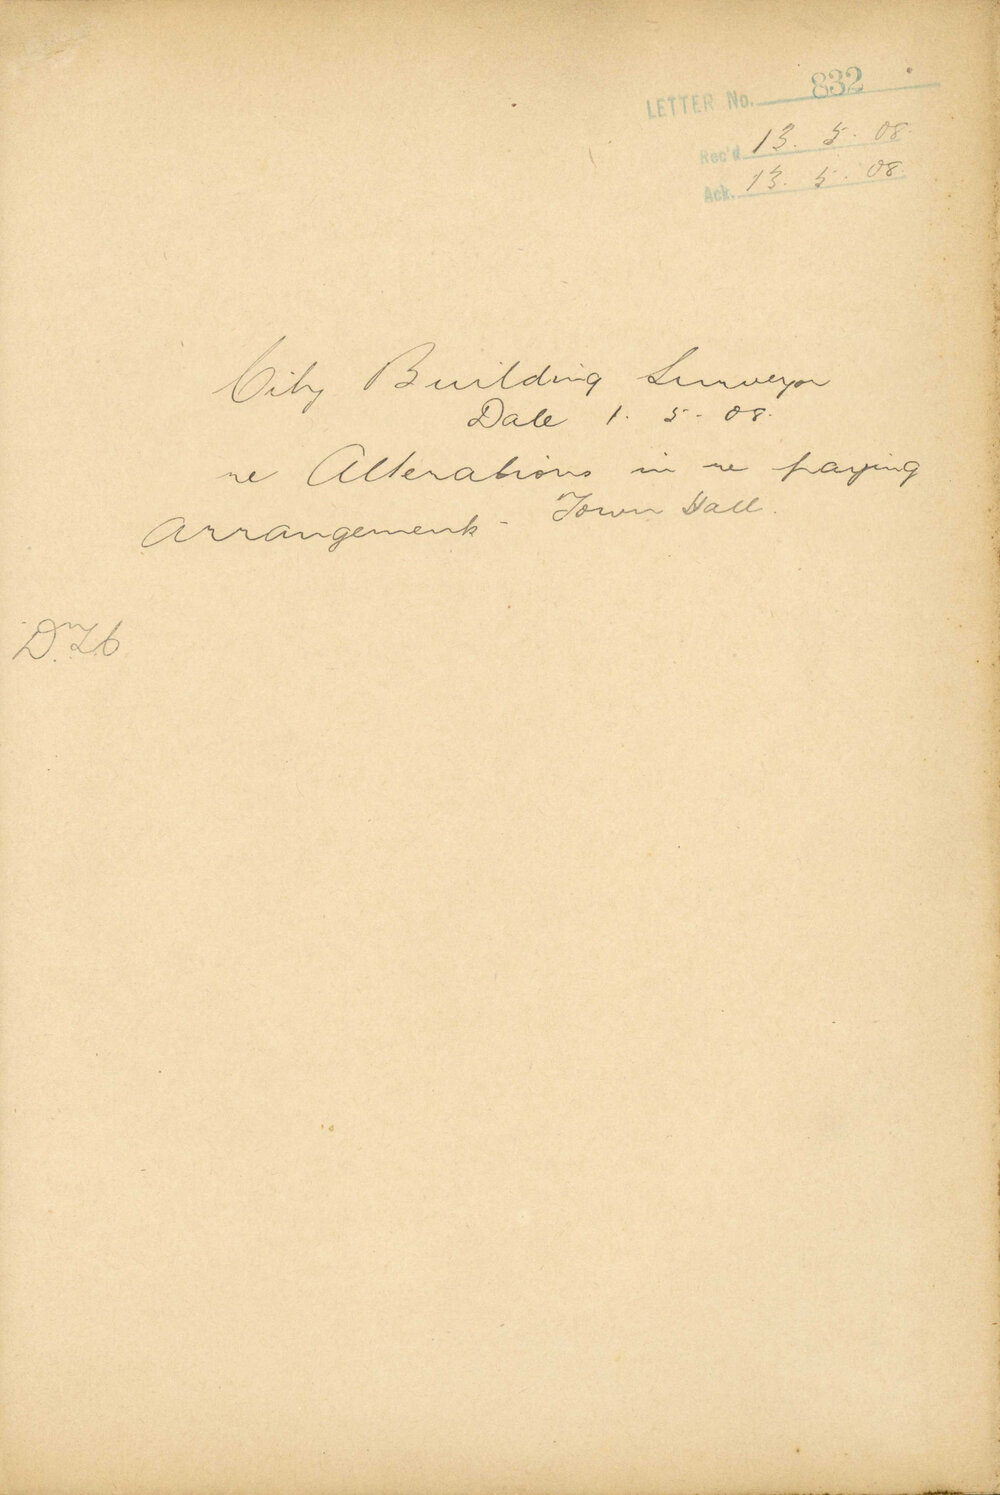 LETTER No. 832
Rec'd 13. 5. 08.
Ack. 13. 5. 08.
City Building Surveyor
Date 1. 5. 08.
re Alterations in re paying
arrangements - Town Hall.